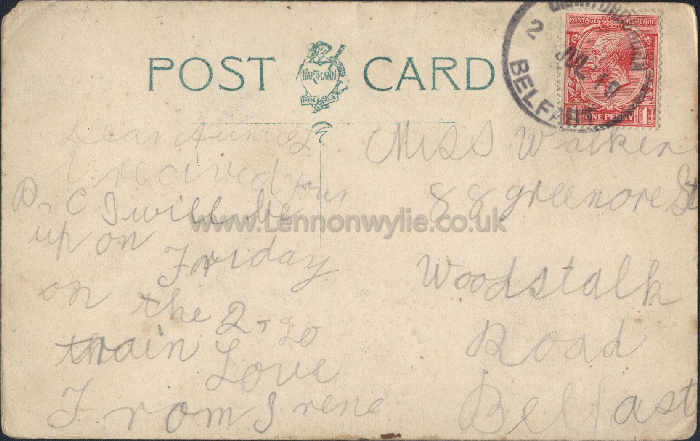 POST CARD
HARTMANN
POSTAGE REVENUE
ONE PENNY
2
JUL
BELFAST
Dear
I received your
P.C I will be
up on Friday
on the 2-20
train Love
From Irene
Miss Walker
88 greenore St
Woodstalk
Road
Belfast
www.Lennonwylie.co.uk